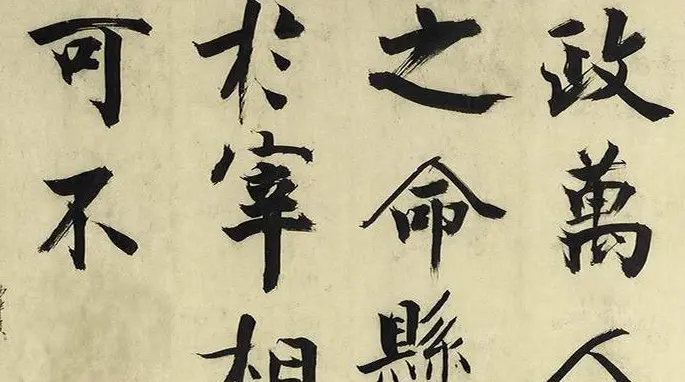 政萬人
之命縣
於宰相
可不